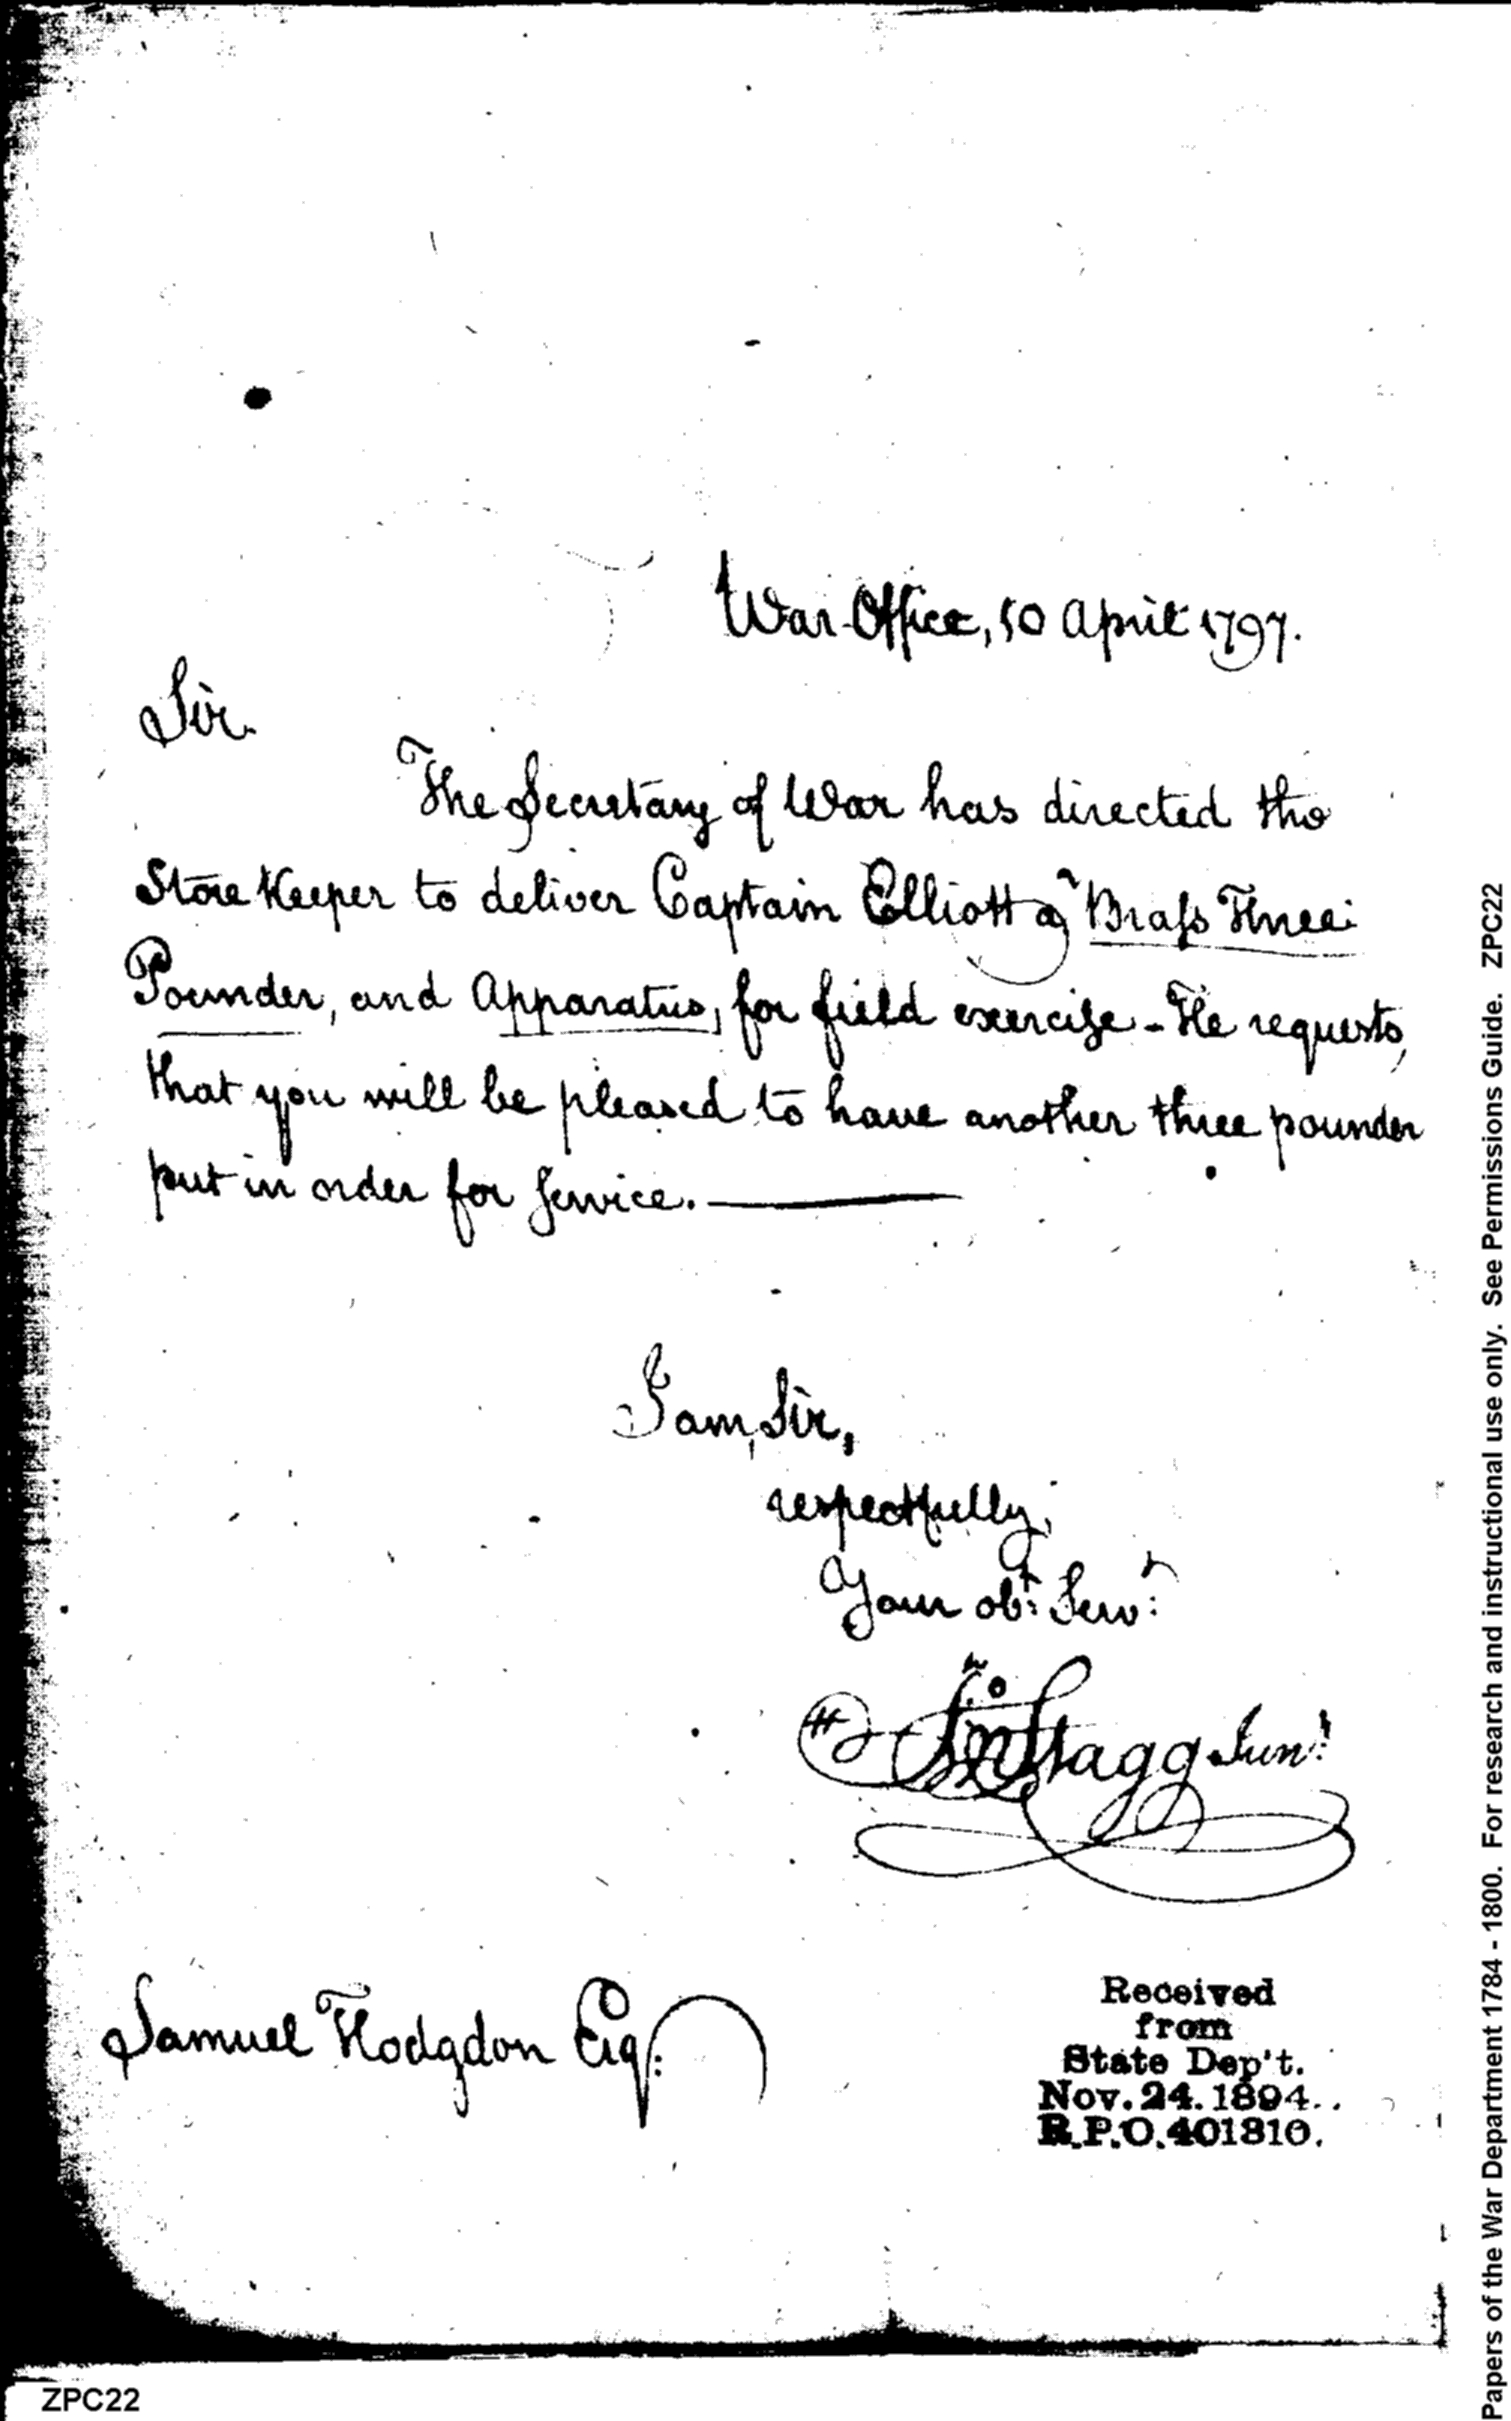 War-Office, 10 April 1797.
Sir.
The Secretary of War has directed the
Store Keeper to deliver Captain Elliott a Brass Three
Pounder, and Apparatus, for field exercise - He requests,
that you will be pleased to have another three pounder
put in order for Service.
I am, Sir,
respectfully,
Your obt: Servt:
Jno Stagg Junr.
Samuel Hodgdon Esq:
Received
from
State Dep't.
Nov. 24. 1894.
R.P.O. 401810.
ZPC22
Papers of the War Department 1784 - 1800. For research and instructional use only. See Permissions Guide. ZPC22